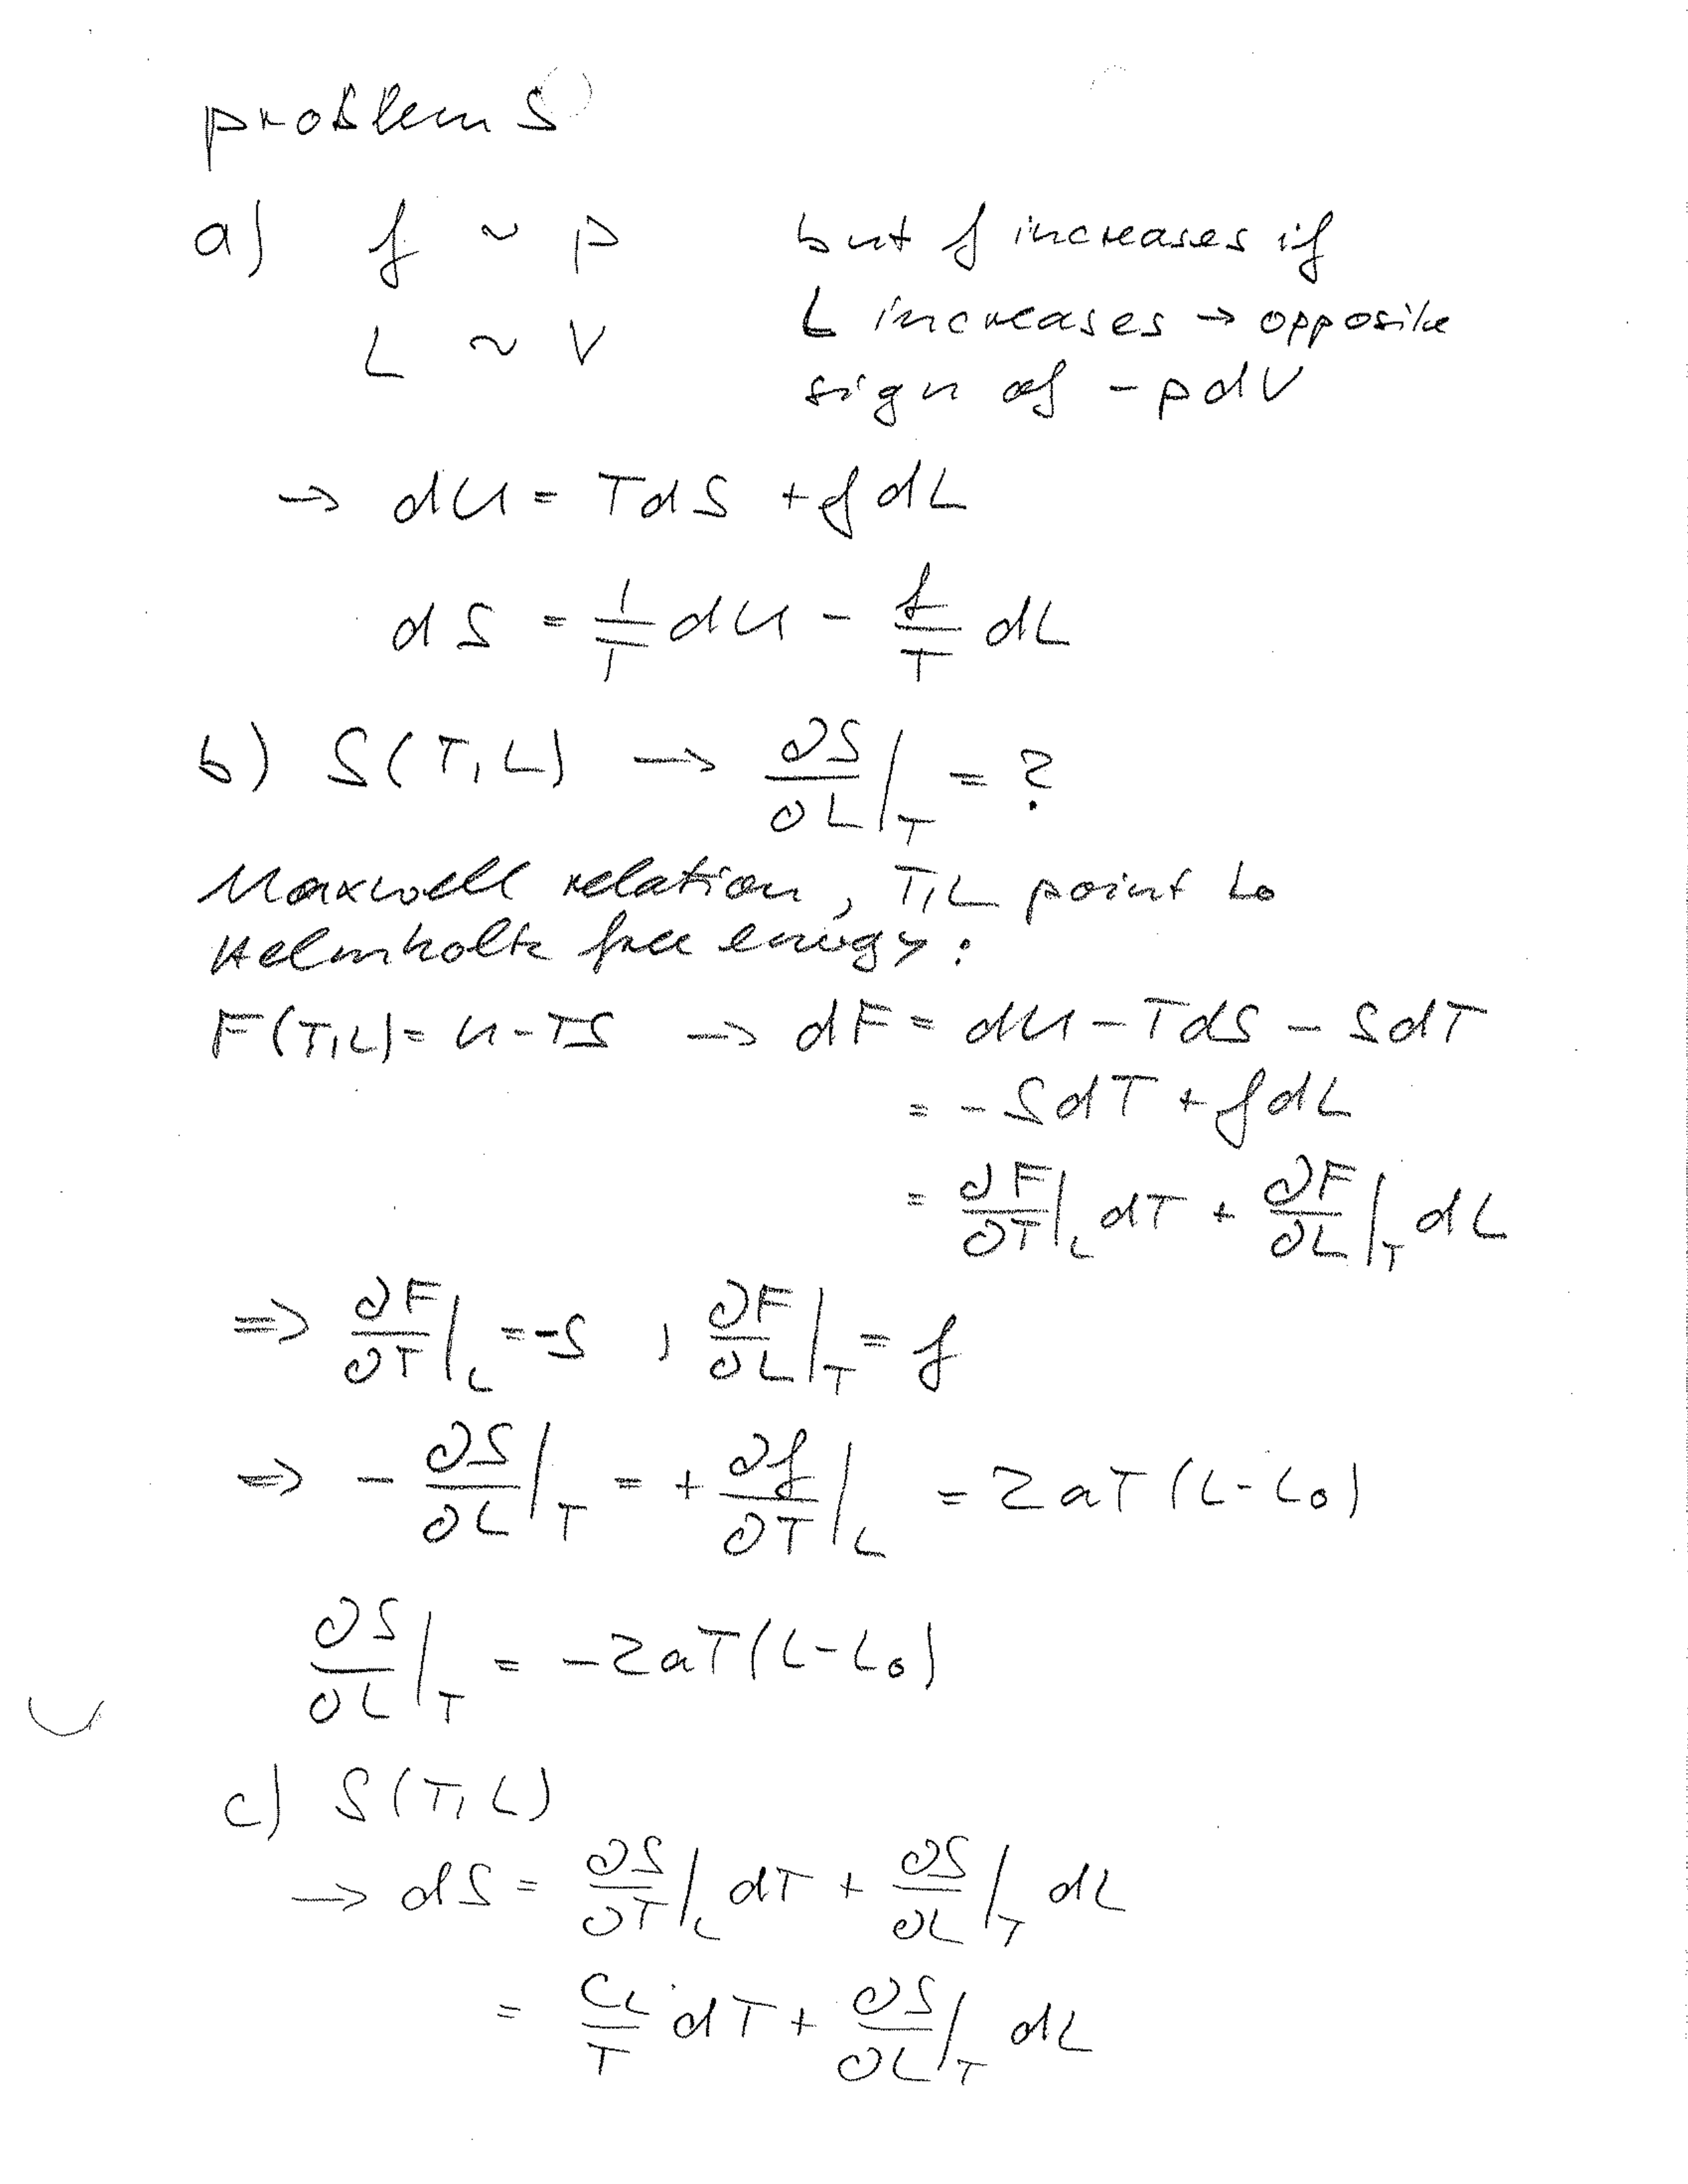 problem 5
a) f ~ p but f increases if
L ~ V L increases → opposite
sign of -pdV
→ dU = TdS + f dL
dS = 1/T dU - f/T dL
b) S(T,L) → ∂S/∂L|_T = ?
Maxwell relation, T,L point to
Helmholtz free energy:
F(T,L) = U-TS → dF = dU - TdS - SdT
= -SdT + f dL
= ∂F/∂T|_L dT + ∂F/∂L|_T dL
⇒ ∂F/∂T|_L = -S , ∂F/∂L|_T = f
⇒ - ∂S/∂L|_T = + ∂f/∂T|_L = 2aT(L-L₀)
∂S/∂L|_T = -2aT(L-L₀)
c) S(T,L)
→ dS = ∂S/∂T|_L dT + ∂S/∂L|_T dL
= C_L/T dT + ∂S/∂L|_T dL